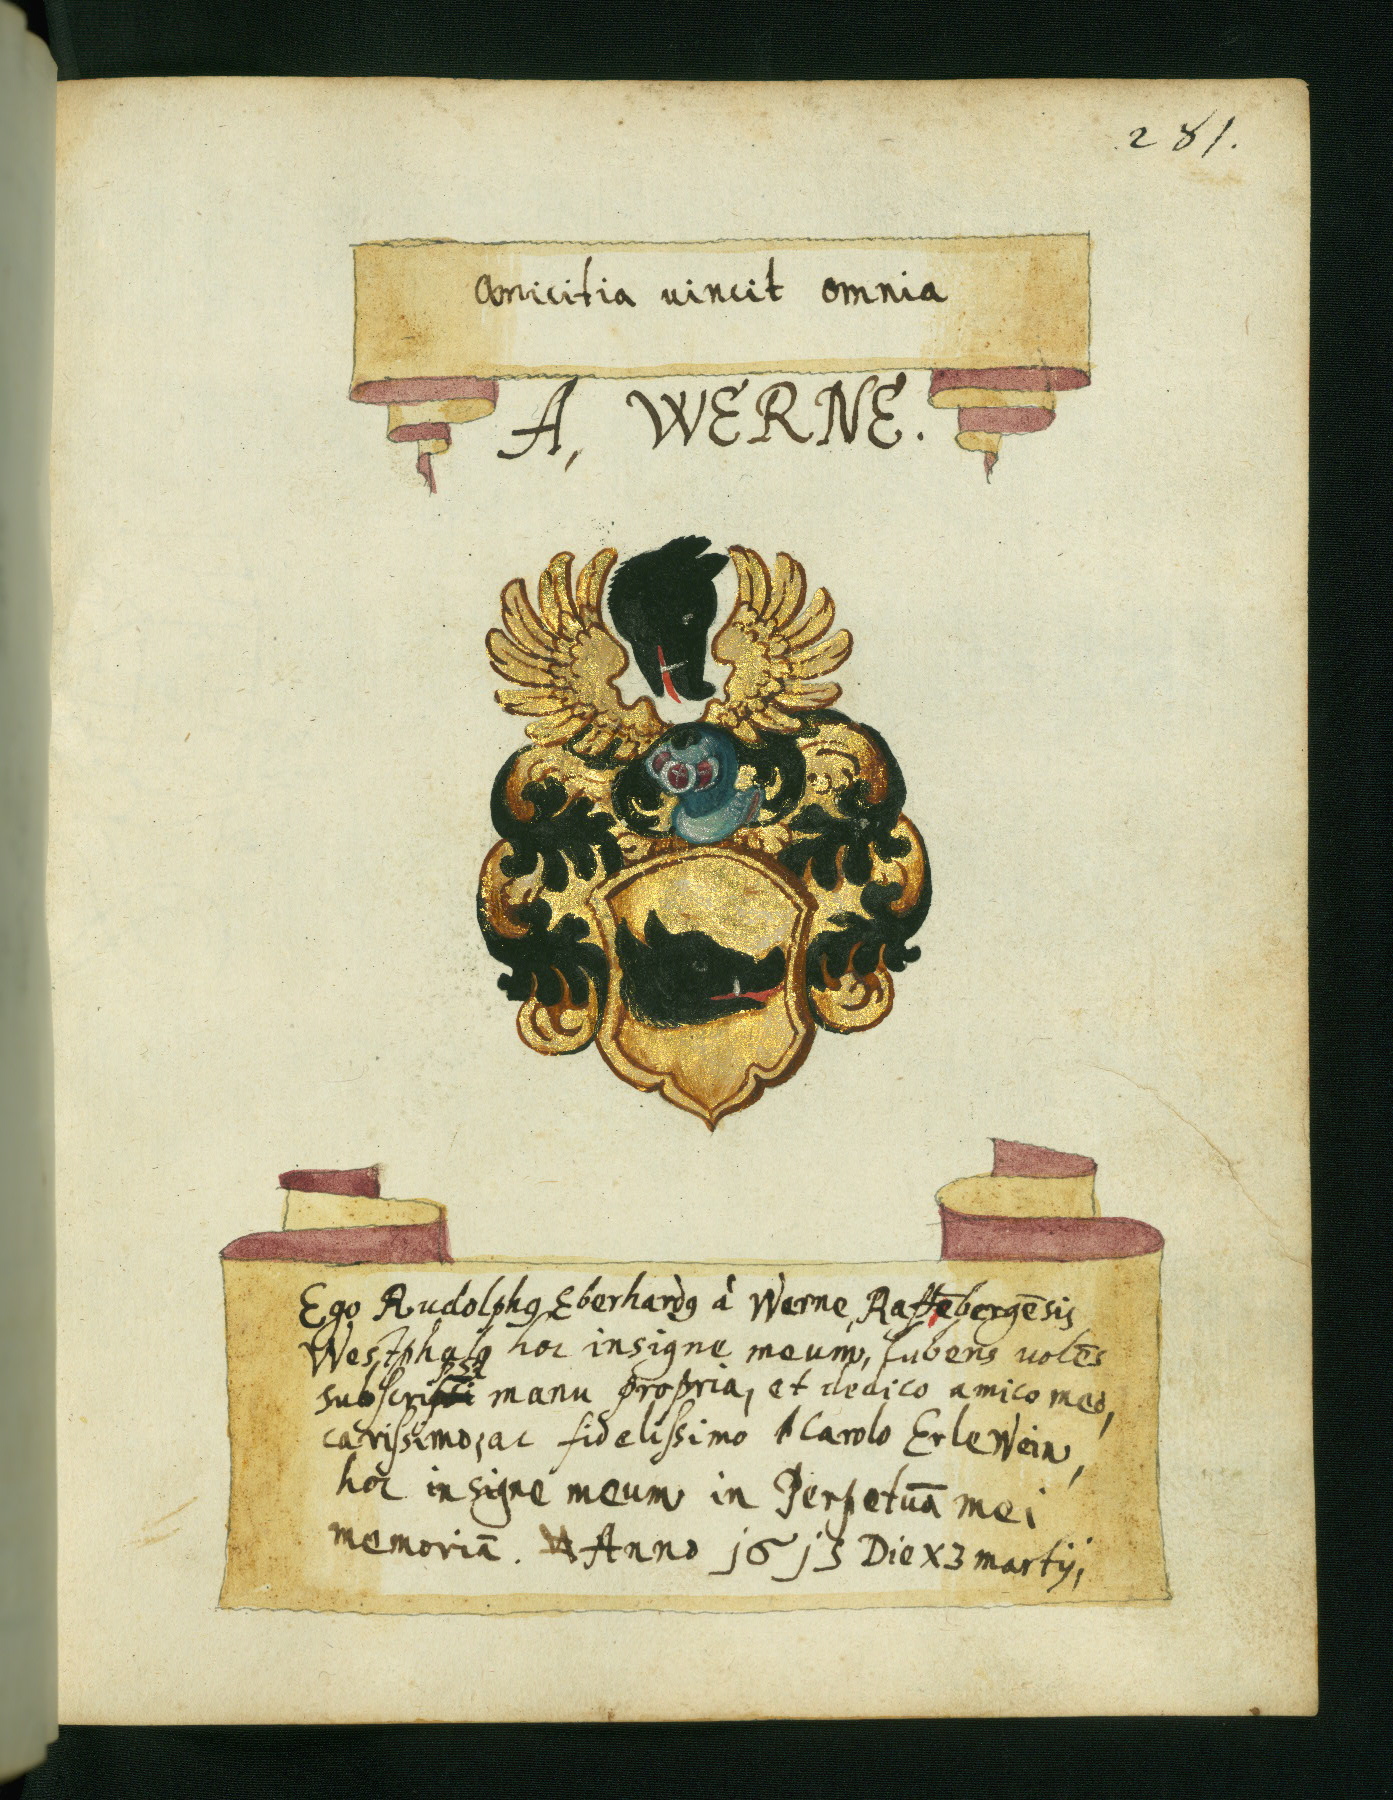 281.
Amicitia uincit omnia
A, WERNE.
Ego Rudolphꝯ Eberhardꝯ à Werne, Raffēbergēsis
Westphalꝯ hoc insigne meum, lubens uolēs
subscripsi manu propria, et dedico amico meo,
carissimo, ac fidelissimo Carolo Erlewein,
hoc insigne meum in Perpetuā mei
memoriā. Anno 1613 Die X3 martij,